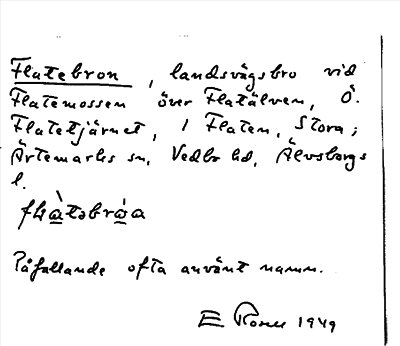 Flatebron, landsvägsbro vid
Flatemossen över Flatälven, Ö.
Flatetjärnet, i Flaten, Stora;
Ärtemarks sn, Vedbo hd, Älvsborgs
l.
flàtəbròa
Påfallande ofta använt namn.
E Rosell 1949